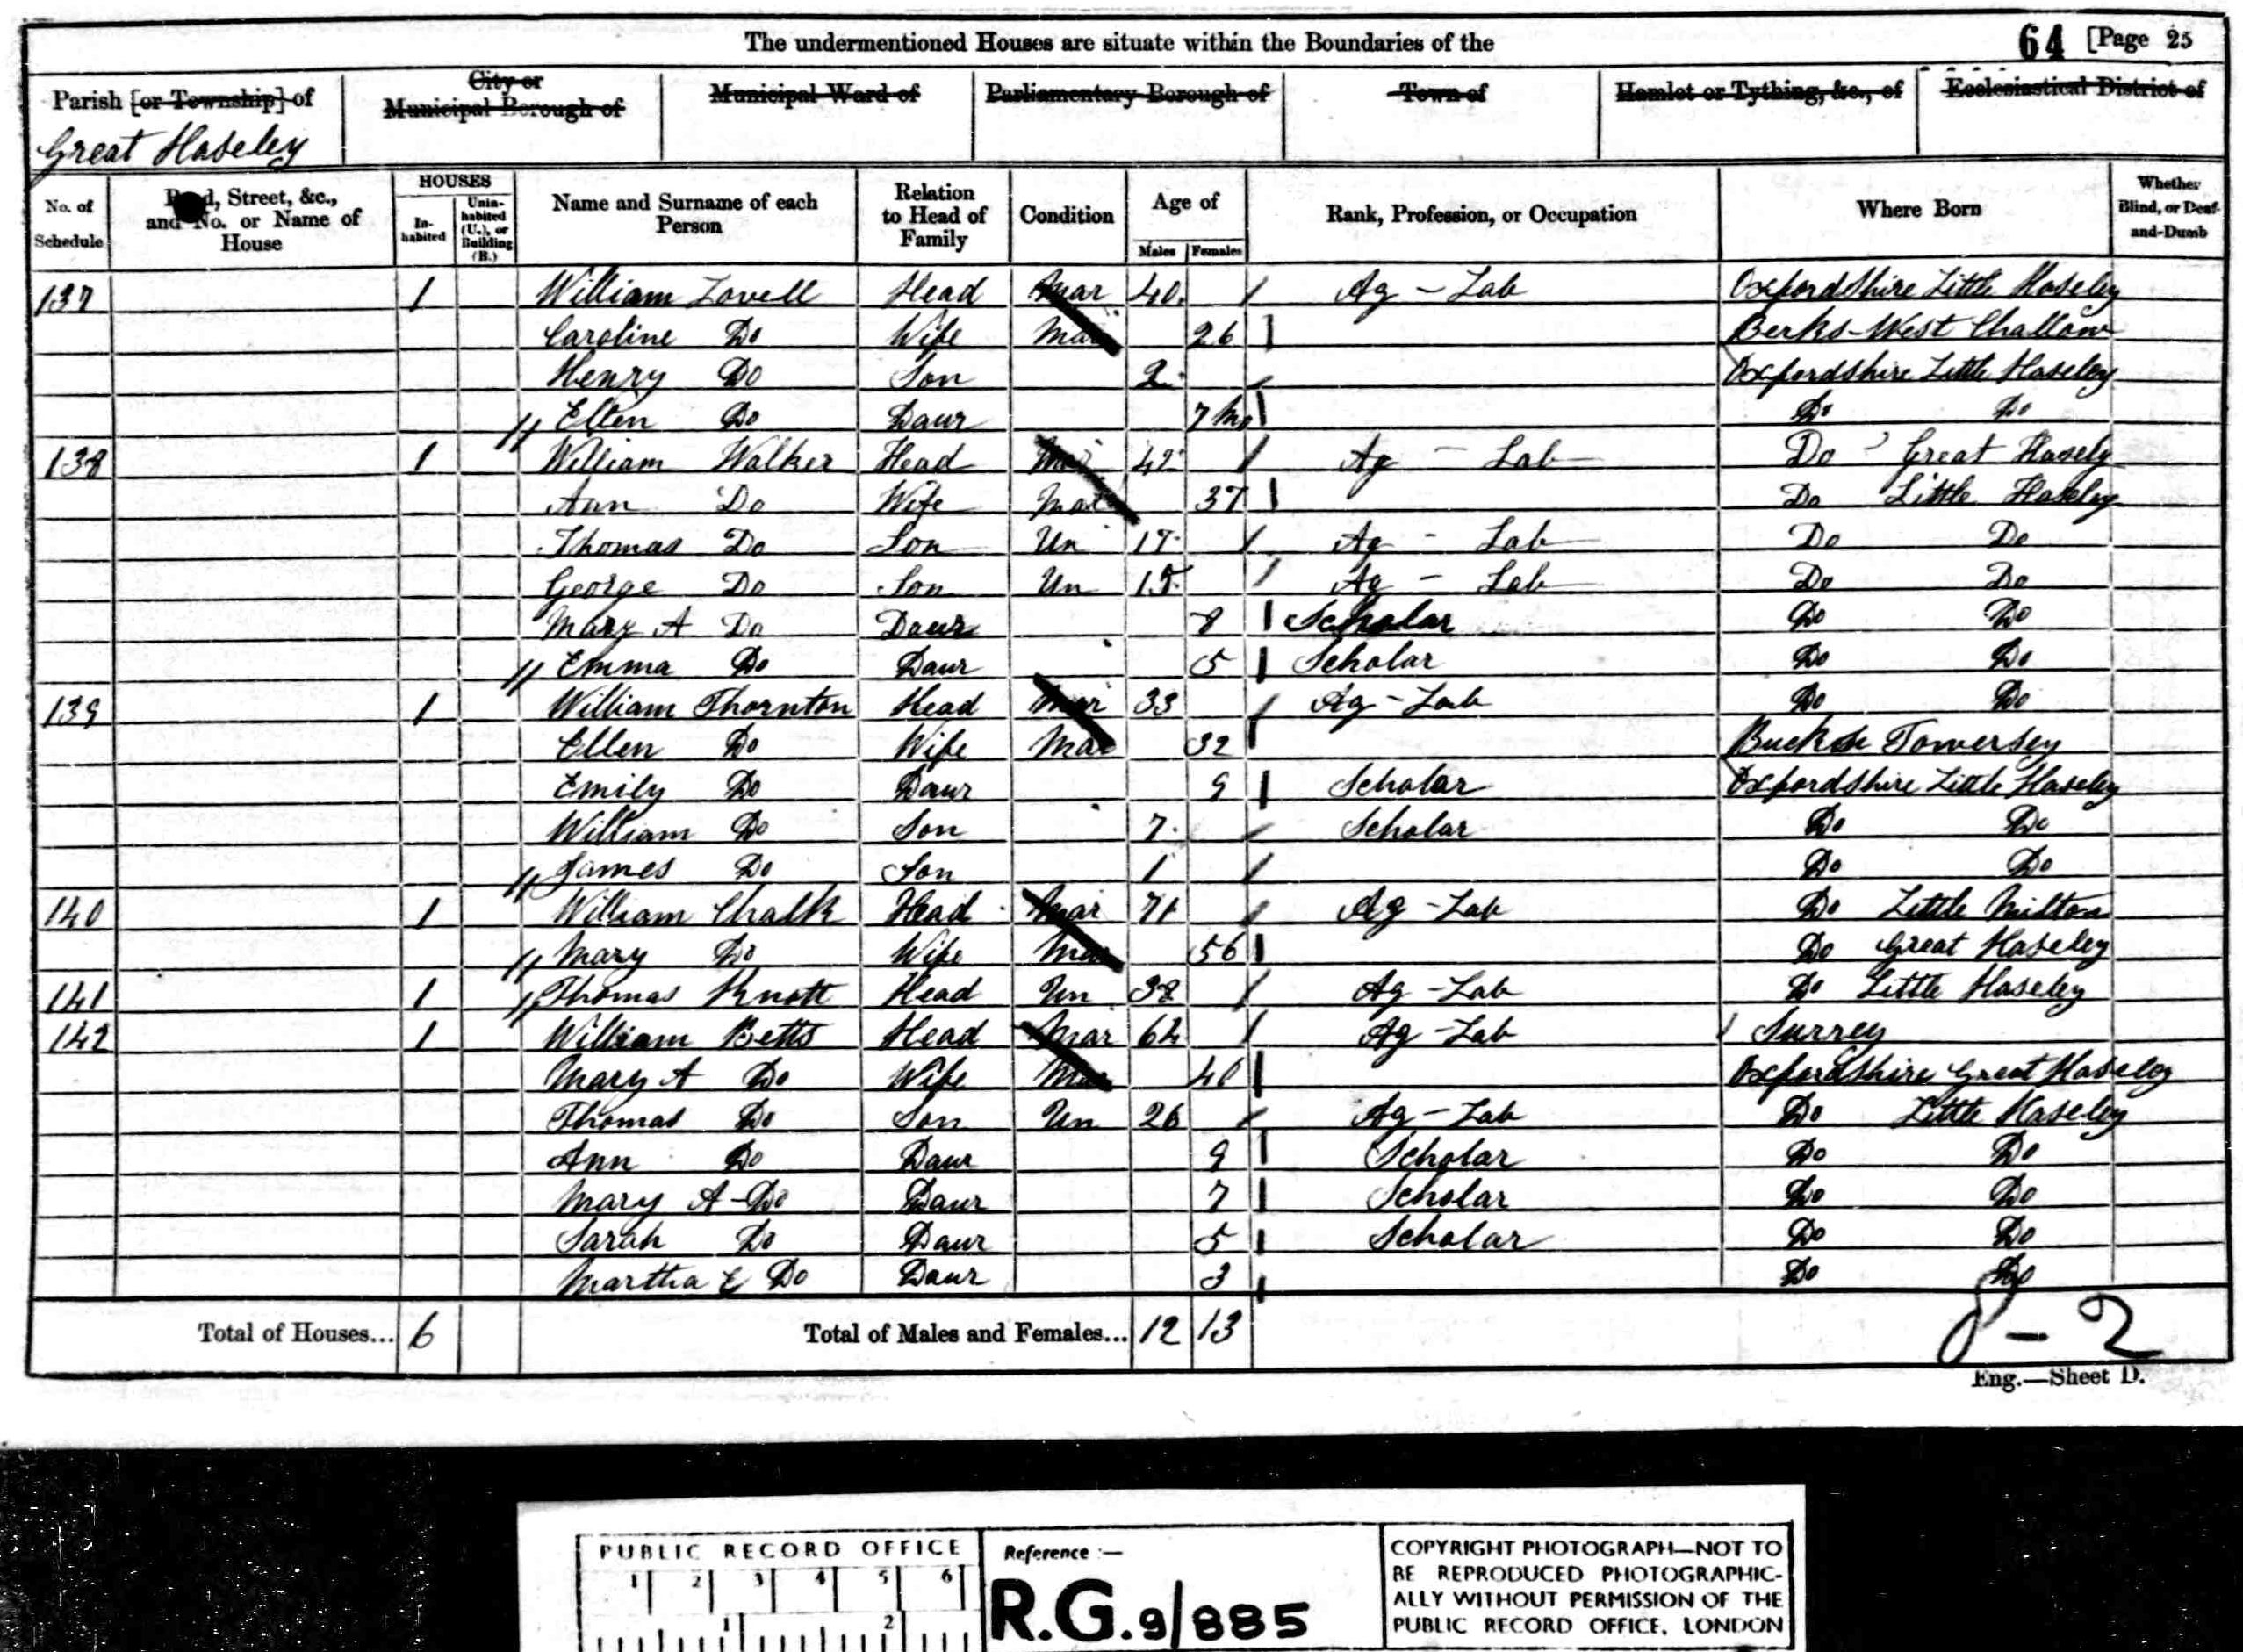 The undermentioned Houses are situate within the Boundaries of the 64 [Page 25
Parish [or Township] of City or Municipal Borough of Municipal Ward of Parliamentary Borough of Town of Hamlet or Tything, &c., of Ecclesiastical District of
Great Haseley
No. of Schedule Road, Street, &c., and No. or Name of House HOUSES In-habited Unin-habited (U.), or Building (B.) Name and Surname of each Person Relation to Head of Family Condition Age of Males Females Rank, Profession, or Occupation Where Born Whether Blind, or Deaf-and-Dumb
137 1 William Lovell Head Mar 40 Ag - Lab Oxfordshire Little Haseley
Caroline Do Wife Mar 26 Berks - West Challow
Henry Do Son 2 Oxfordshire Little Haseley
Ellen Do Daur 7 Mo Do Do
138 1 William Walker Head Mar 42 Ag - Lab Do Great Hasely
Ann Do Wife Mar 37 Do Little Haseley
Thomas Do Son Un 17 Ag - Lab Do Do
George Do Son Un 15 Ag - Lab Do Do
Mary A Do Daur 8 Scholar Do Do
Emma Do Daur 5 Scholar Do Do
139 1 William Thornton Head Mar 33 Ag - Lab Do Do
Ellen Do Wife Mar 32 Bucks Towersey
Emily Do Daur 9 Scholar Oxfordshire Little Haseley
William Do Son 7 Scholar Do Do
James Do Son 1 Do Do
140 1 William Chalk Head Mar 71 Ag - Lab Do Little Milton
Mary Do Wife Mar 56 Do Great Haseley
141 1 Thomas Knott Head Un 38 Ag - Lab Do Little Haseley
142 1 William Betts Head Mar 62 Ag - Lab Surrey
Mary A Do Wife Mar 40 Oxfordshire Great Haseley
Thomas Do Son Un 26 Ag - Lab Do Little Haseley
Ann Do Daur 9 Scholar Do Do
Mary A - Do Daur 7 Scholar Do Do
Sarah Do Daur 5 Scholar Do Do
Martha E Do Daur 3 Do Do
Total of Houses... 6 Total of Males and Females... 12 13
Eng.—Sheet D.
PUBLIC RECORD OFFICE
1 2 3 4 5 6
1 2
Reference :—
R.G.9/885
COPYRIGHT PHOTOGRAPH—NOT TO
BE REPRODUCED PHOTOGRAPHIC-
ALLY WITHOUT PERMISSION OF THE
PUBLIC RECORD OFFICE, LONDON